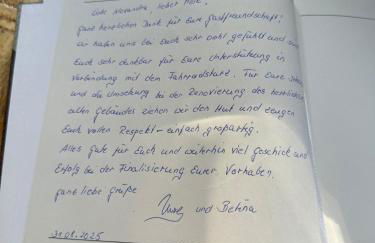 Liebe Alexandra, lieber
ganz herzlichen Dank für Eure Gastfreundschaft!
Wir haben uns bei Euch sehr wohl gefühlt und sind
Euch sehr dankbar für Eure Unterstützung in
Verbindung mit dem Fahrrad. Für Eure
und die Umsetzung bei der Renovierung des herrlichen
alten Gebäudes ziehen wir den Hut und zeugen
Euch vollen Respekt – einfach großartig.
Alles gute für Euch und weiterhin viel Geschick und
Erfolg bei der Finalisierung Eurer Vorhaben.
ganz liebe Grüße
und Betina
31.08.2025